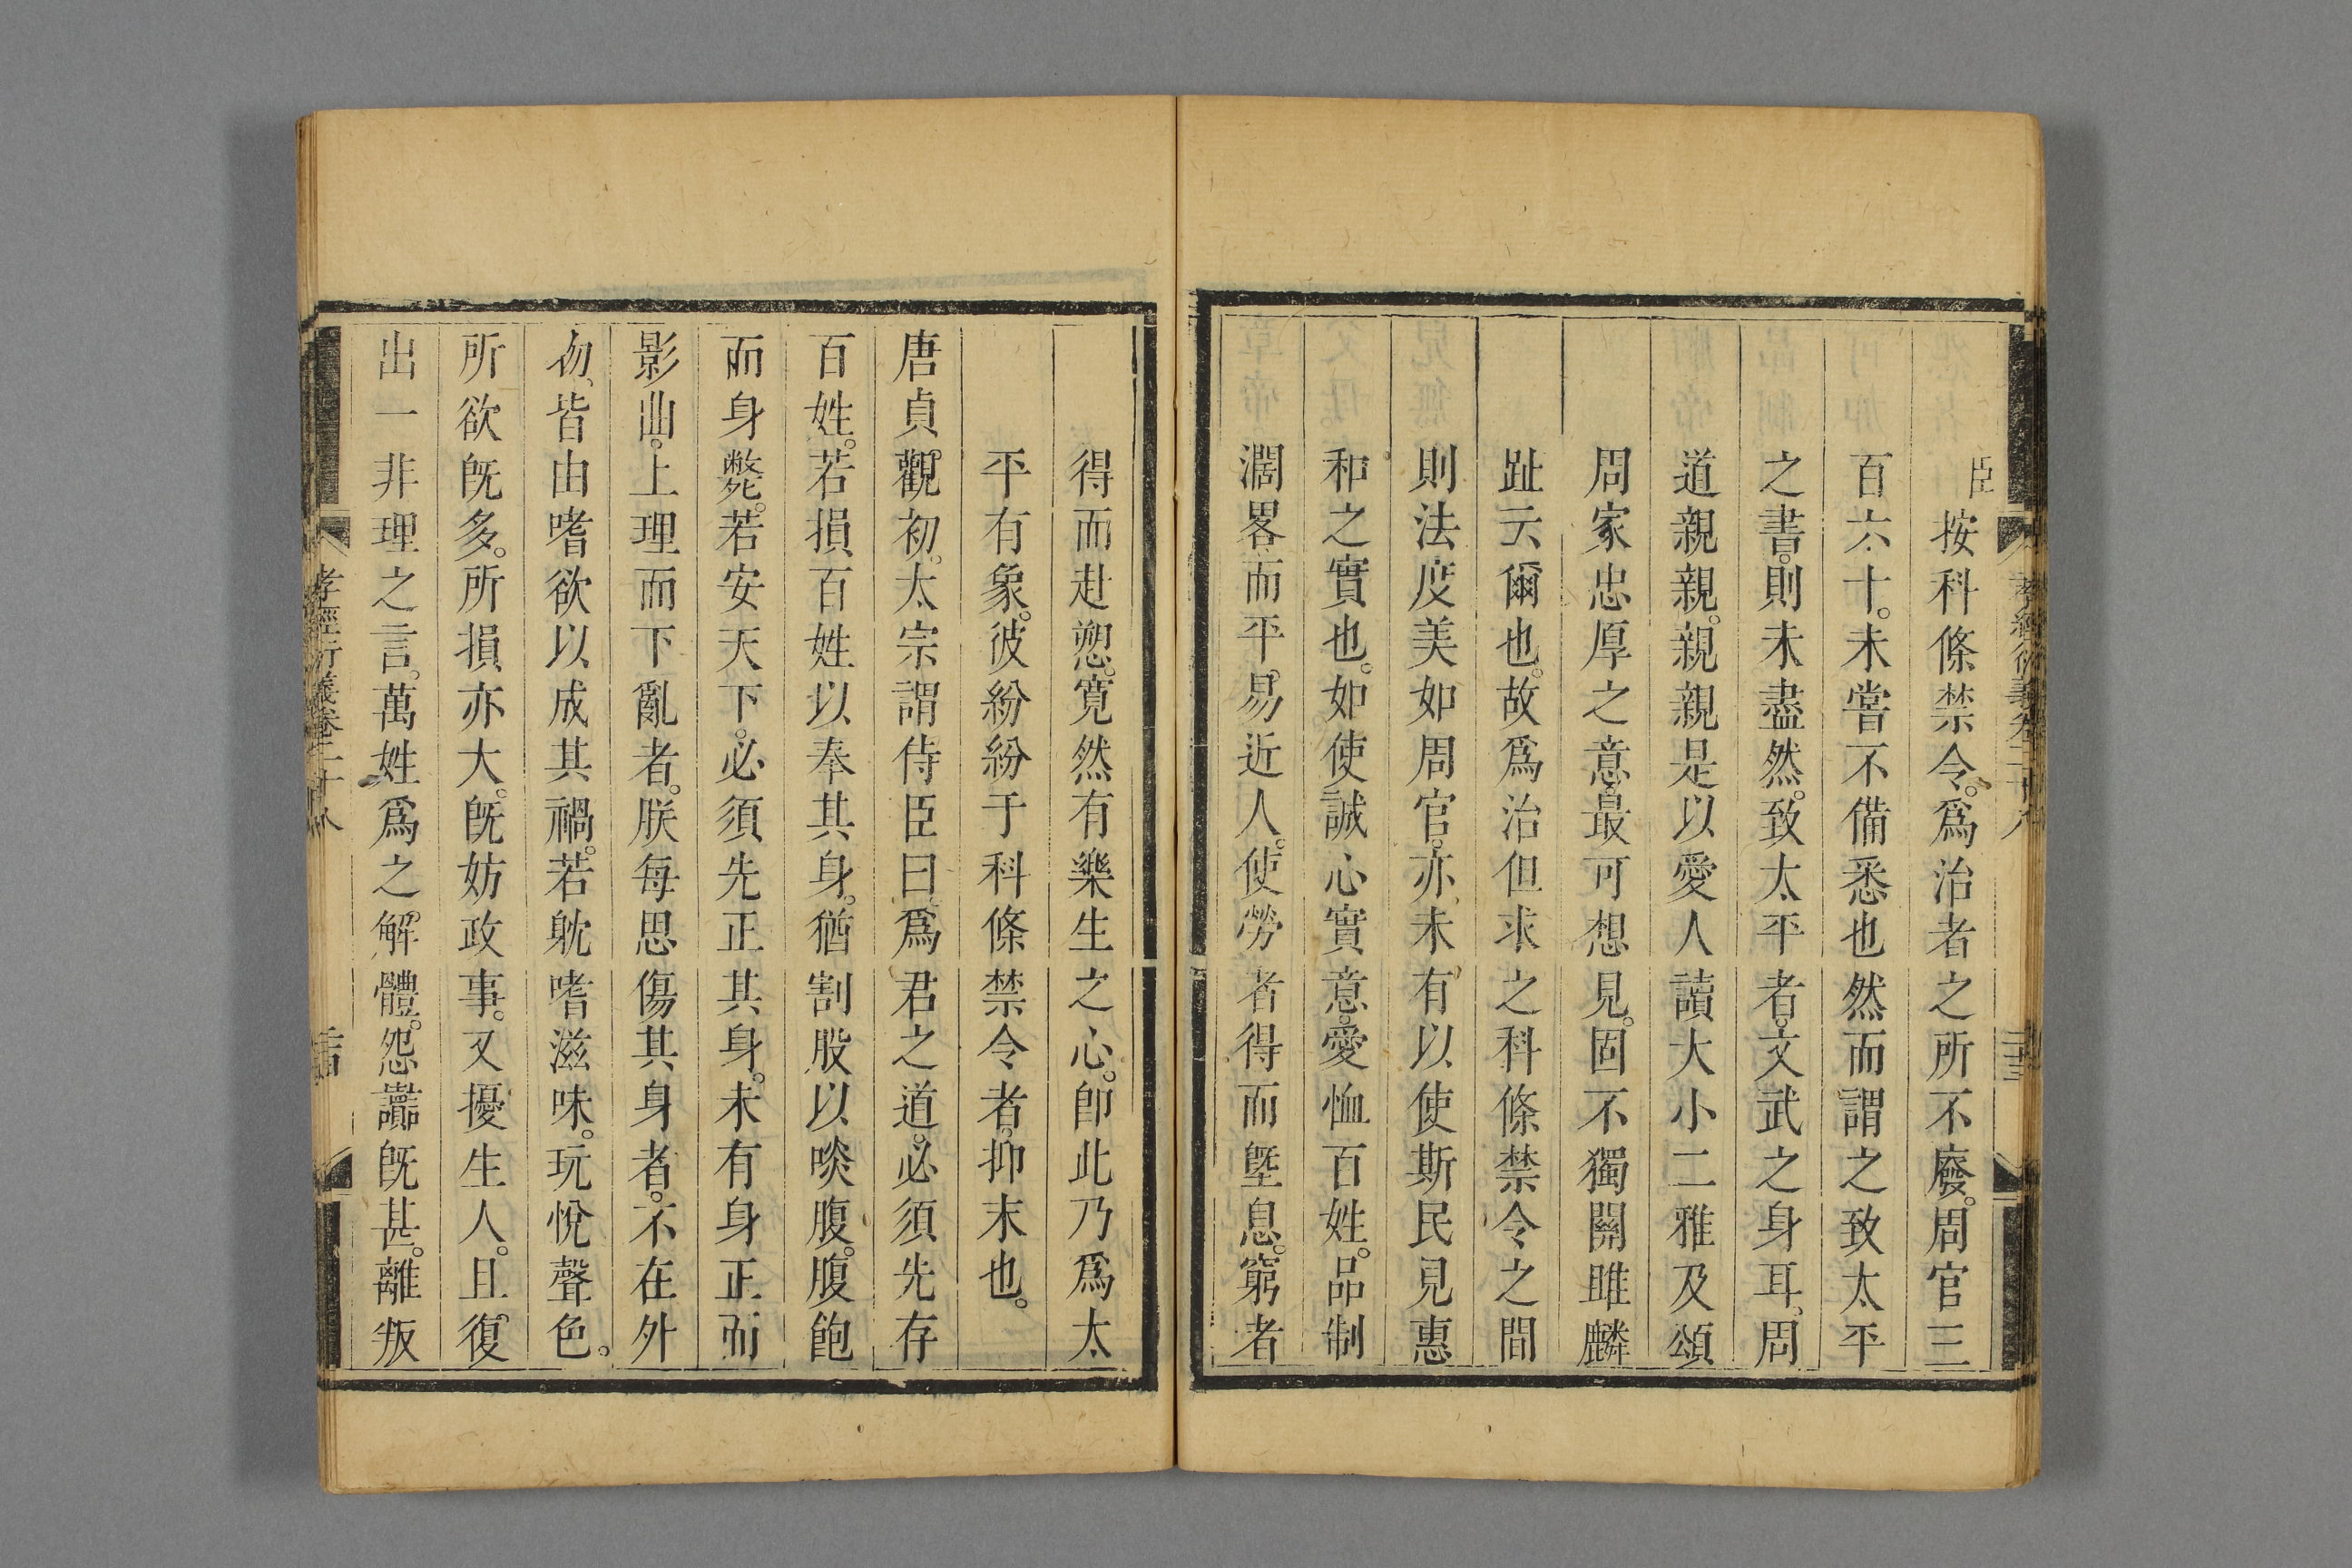 臣按科條禁令。爲治者之所不廢。周官三
百六十。未嘗不備悉也然而謂之致太平
之書。則未盡然。致太平者。文武之身耳、周
道親親。親親是以愛人讀大小二雅及頌
周家忠厚之意。最可想見。固不獨關雎麟
趾云爾也。故爲治但求之科條禁令之間
則法度美如周官。亦未有以使斯民見惠
和之實也。如使誠心實意。愛恤百姓。品制
濶畧而平。易近人。使勞者得而塈息。窮者
得而赴愬。寛然有樂生之心。卽此乃爲太
平有象。彼紛紛于科條禁令者。抑末也。
唐貞觀初。太宗謂侍臣曰、爲君之道。必須先存
百姓。若損百姓以奉其身。猶割股以啖腹。腹飽
而身斃。若安天下。必須先正其身。未有身正而
影曲。上理而下亂者。朕每思傷其身者。不在外
物、皆由嗜欲以成其禍。若躭嗜滋味。玩悅聲色。
所欲旣多。所損亦大。旣妨政事。又擾生人。且。復
出一非理之言。萬姓爲之解體。怨讟旣甚。離叛
孝經衍義卷二十八
孝經衍義卷二十八